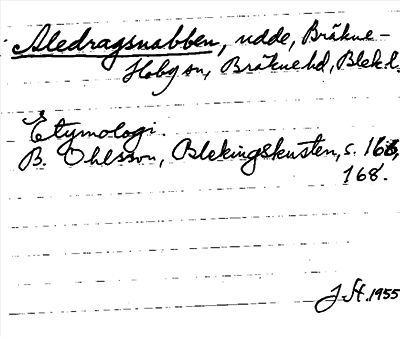 Aledragsnabben, udde, Bräkne-
Hoby sn, Bräkne hd, Blek. l.
Etymologi.
B. Ohlsson, Blekingskusten, s. 166,
168.
J. St. 1955